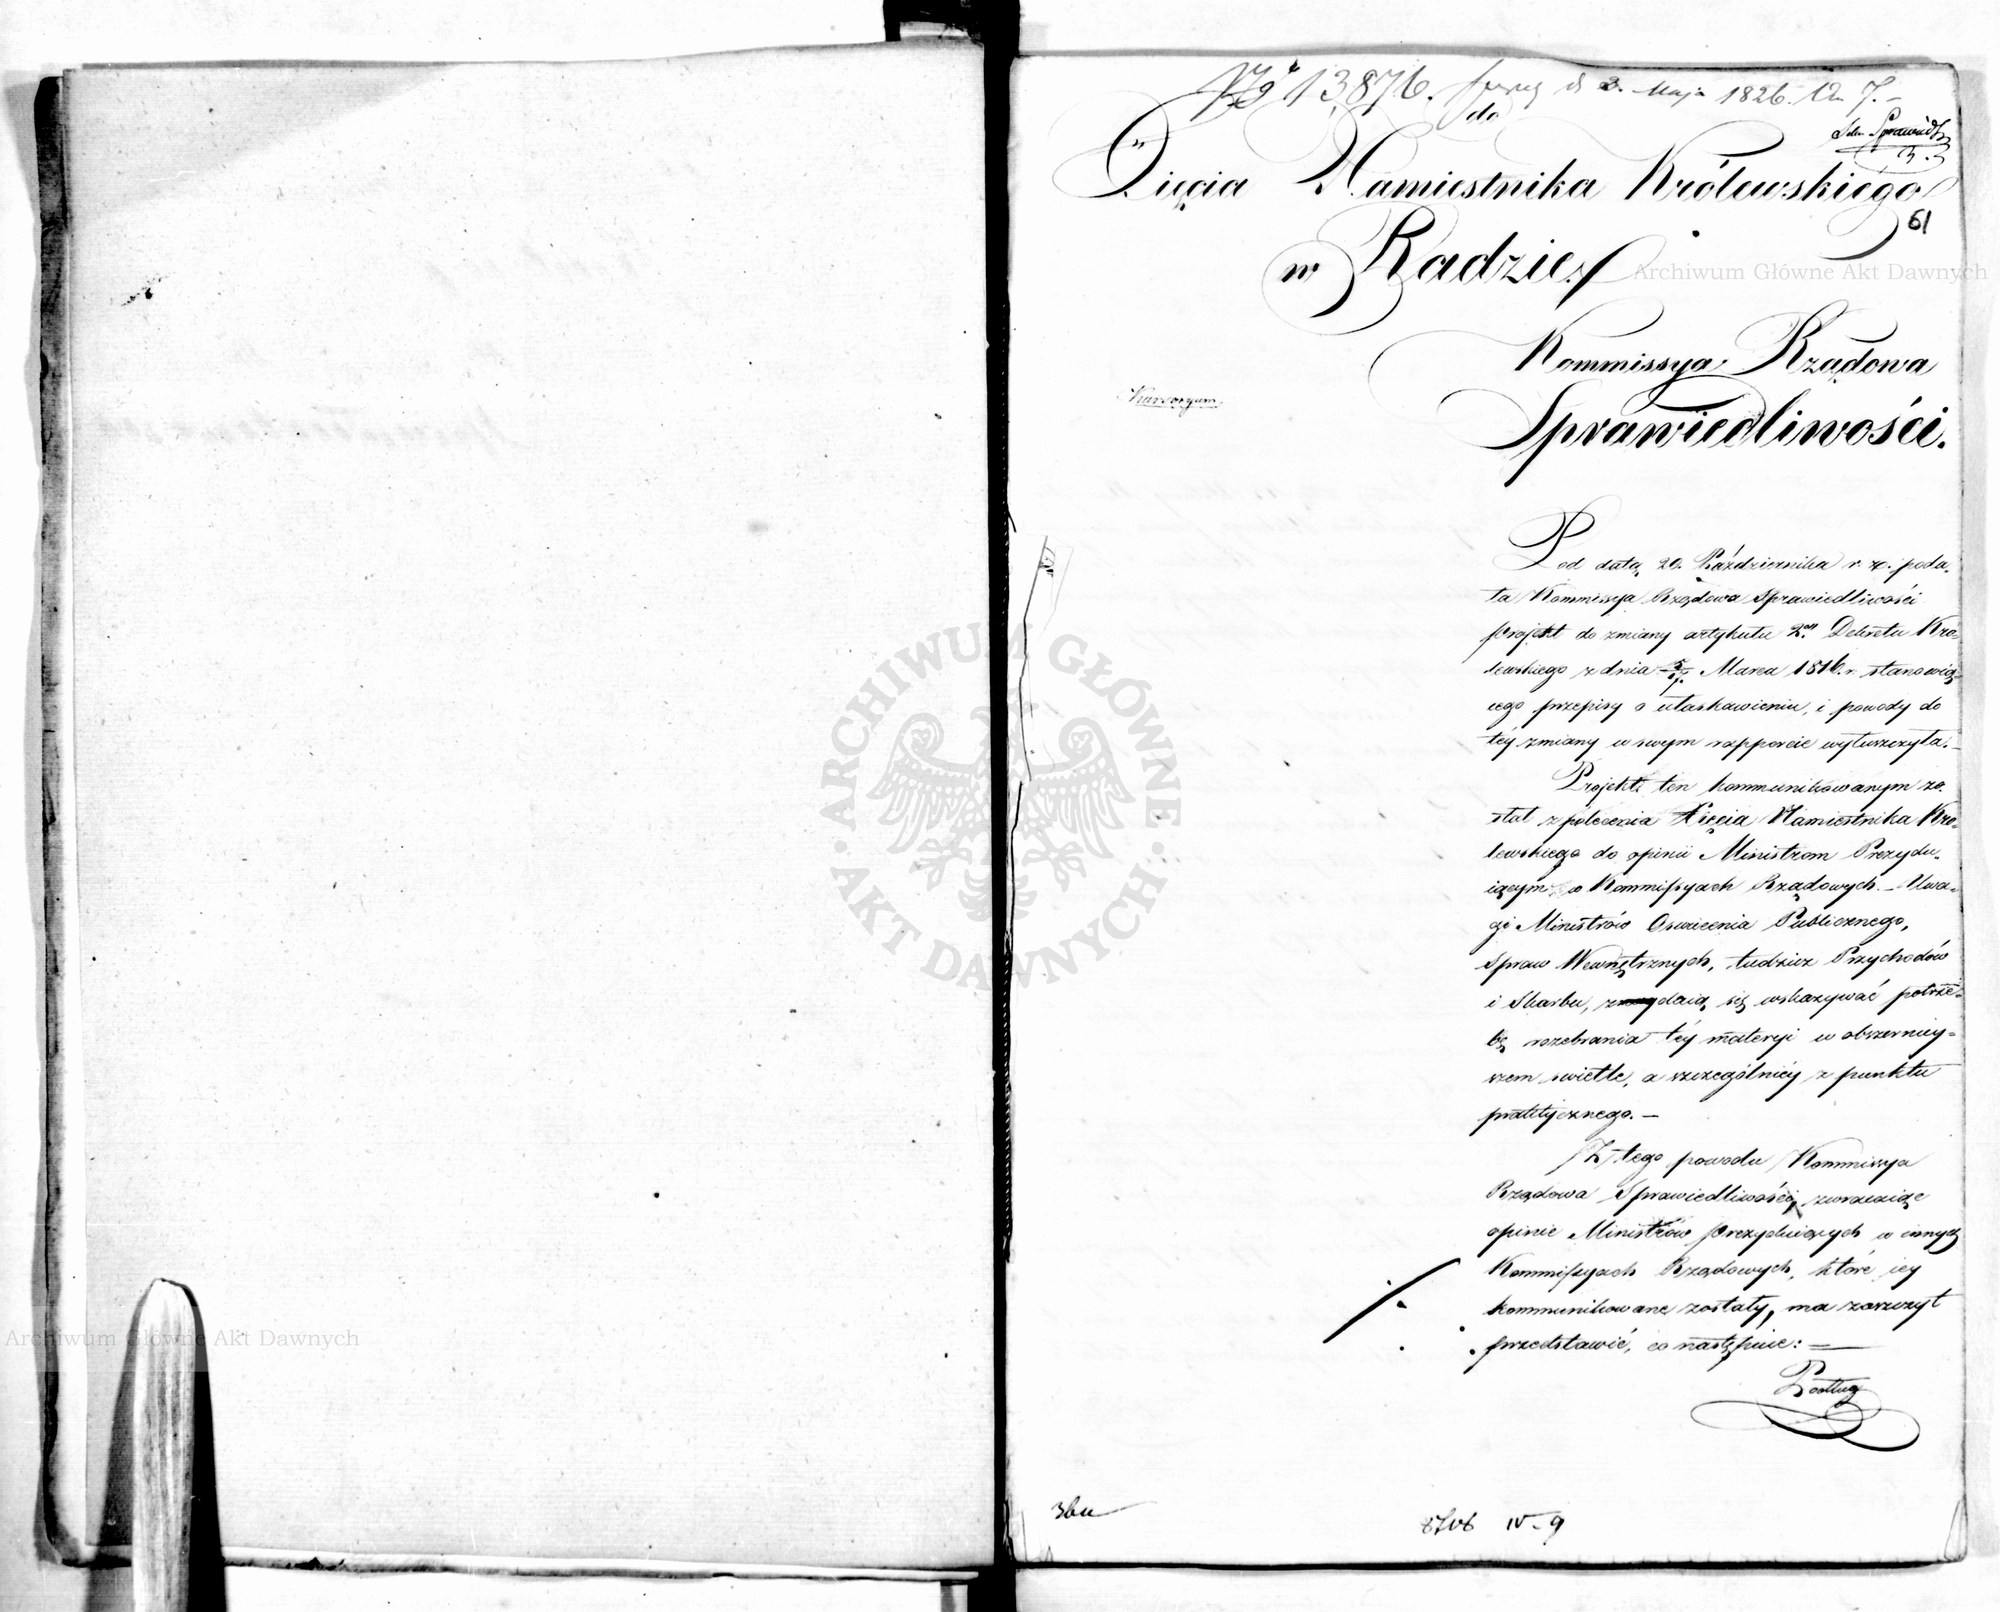 13,876. d 3. Maja 1826. 7.-
do
Xięcia Namiestnika Królewskiego
61
w Radzie
Archiwum Główne Akt Dawnych
Kommissya Rządowa
Sprawiedliwości.
Pod datą 20. Października r. z. poda-
ła Kommissya Rządowa Sprawiedliwości
projekt do zmiany artykułu 2go Dekretu Kró-
lewskiego z dnia Marca 1816. r. stanowią-
cego przepisy o ułaskawieniu, i powody do
téy zmiany w swym rapporcie wyłuszczyła.-
Projekt ten kommunikowanym zo-
stał z polecenia Xięcia Namiestnika Kró-
lewskiego do opinii Ministrom Prezydu-
iącym w Kommissyach Rządowych. - Uwa-
gi Ministrów Oswiecenia Publicznego,
Spraw Wewnętrznych, tudzież Przychodów
i Skarbu, zdaią się wskazywać potrze-
bę rozebrania téy materyi w obszerniey-
szem swietle, a szczególniéy z punktu
politycznego. -
Z tego powodu Kommissya
Rządowa Sprawiedliwości, zwracaiąc
opinie Ministrów prezyduiących w innych
Kommissyach Rządowych, które iey
kommunikowane zostały, ma zaszczyt
przedstawić, co następuie: -
Podług
8708 IV-9
ARCHIWUM GŁÓWNE · AKT DAWNYCH ·
Archiwum Główne Akt Dawnych